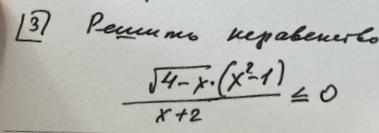 3 Решить неравенство
√(4-x)·(x²-1) / (x+2) ≤ 0